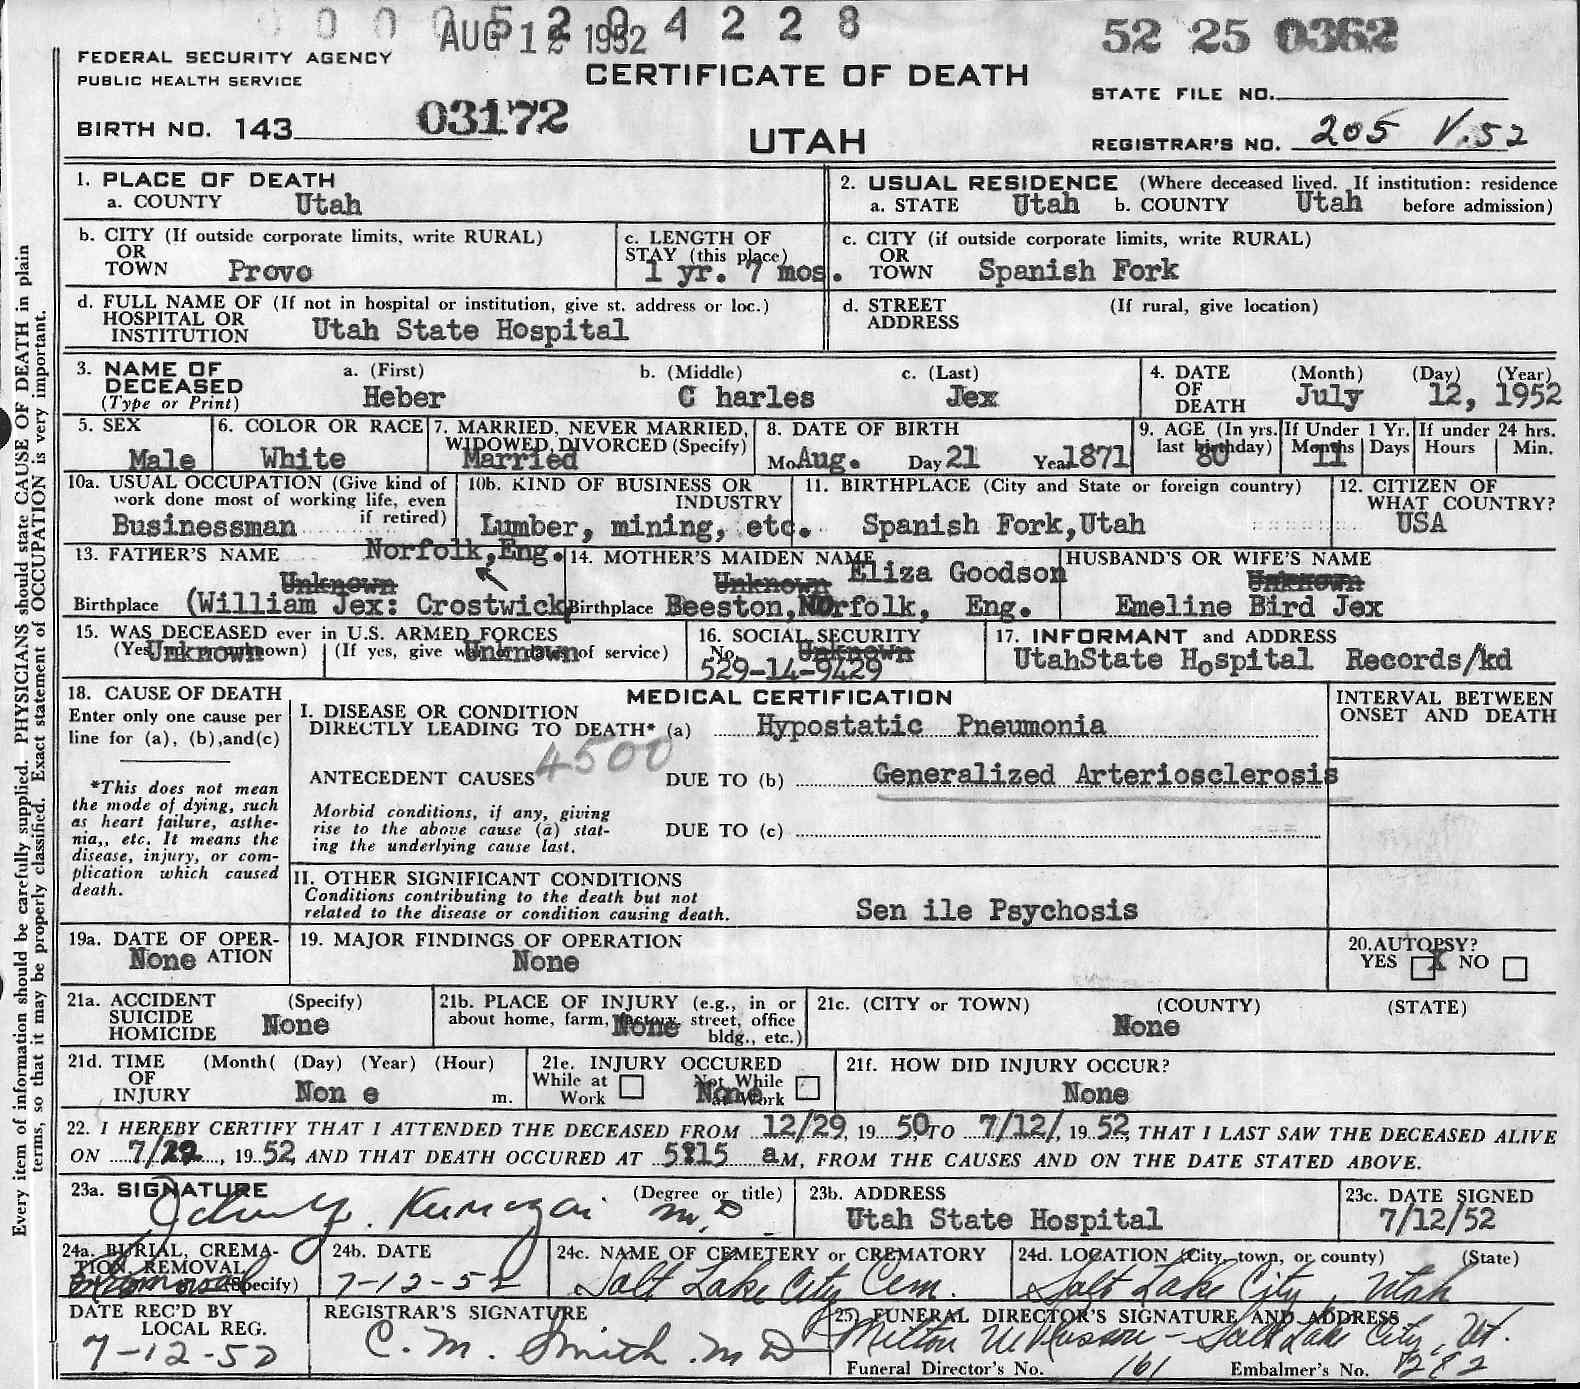 0 0 0 5 2 0 4 2 2 8
AUG 12 1952
52 25 0362
FEDERAL SECURITY AGENCY
PUBLIC HEALTH SERVICE
CERTIFICATE OF DEATH
STATE FILE NO.
BIRTH NO. 143 03172
UTAH
REGISTRAR'S NO. 205 V.52
Every item of information should be carefully supplied. PHYSICIANS should state CAUSE OF DEATH in plain
terms, so that it may be properly classified. Exact statement of OCCUPATION is very important.
1. PLACE OF DEATH
a. COUNTY Utah
2. USUAL RESIDENCE (Where deceased lived. If institution: residence
a. STATE Utah b. COUNTY Utah before admission)
b. CITY (If outside corporate limits, write RURAL)
OR
TOWN Provo
c. LENGTH OF
STAY (this place)
1 yr. 7 mos.
c. CITY (if outside corporate limits, write RURAL)
OR
TOWN Spanish Fork
d. FULL NAME OF (If not in hospital or institution, give st. address or loc.)
HOSPITAL OR
INSTITUTION Utah State Hospital
d. STREET (If rural, give location)
ADDRESS
3. NAME OF a. (First) b. (Middle) c. (Last)
DECEASED Heber C harles Jex
(Type or Print)
4. DATE (Month) (Day) (Year)
OF July 12, 1952
DEATH
5. SEX
Male
6. COLOR OR RACE
White
7. MARRIED, NEVER MARRIED,
WIDOWED, DIVORCED (Specify)
Married
8. DATE OF BIRTH
Mo Aug. Day 21 Year 1871
9. AGE (In yrs. last birthday) 80
If Under 1 Yr. Months 11 Days
If under 24 hrs. Hours Min.
10a. USUAL OCCUPATION (Give kind of
work done most of working life, even
if retired)
Businessman
10b. KIND OF BUSINESS OR
INDUSTRY
Lumber, mining, etc.
11. BIRTHPLACE (City and State or foreign country)
Spanish Fork,Utah
12. CITIZEN OF
WHAT COUNTRY?
USA
13. FATHER'S NAME Norfolk,Eng.
Unknown
Birthplace (William Jex: Crostwick,
14. MOTHER'S MAIDEN NAME
Unknown Eliza Goodson
Birthplace Beeston,Norfolk, Eng.
HUSBAND'S OR WIFE'S NAME
Unknown
Emeline Bird Jex
15. WAS DECEASED ever in U.S. ARMED FORCES
(Yes, no or unknown) Unknown (If yes, give war or dates of service) Unknown
16. SOCIAL SECURITY
No. Unknown
529-14-9429
17. INFORMANT and ADDRESS
UtahState Hospital Records/kd
18. CAUSE OF DEATH
Enter only one cause per
line for (a), (b),and(c)
*This does not mean
the mode of dying, such
as heart failure, asthe-
nia,, etc. It means the
disease, injury, or com-
plication which caused
death.
MEDICAL CERTIFICATION
I. DISEASE OR CONDITION
DIRECTLY LEADING TO DEATH* (a) Hypostatic Pneumonia
4500
ANTECEDENT CAUSES DUE TO (b) Generalized Arteriosclerosis
Morbid conditions, if any, giving
rise to the above cause (a) stat-
ing the underlying cause last.
DUE TO (c)
INTERVAL BETWEEN
ONSET AND DEATH
II. OTHER SIGNIFICANT CONDITIONS
Conditions contributing to the death but not
related to the disease or condition causing death.
Sen ile Psychosis
19a. DATE OF OPER-
ATION None
19. MAJOR FINDINGS OF OPERATION
None
20.AUTOPSY?
YES X NO
21a. ACCIDENT (Specify)
SUICIDE
HOMICIDE None
21b. PLACE OF INJURY (e.g., in or
about home, farm, factory, street, office
bldg., etc.)
None
21c. (CITY or TOWN) (COUNTY) (STATE)
None
21d. TIME (Month( (Day) (Year) (Hour)
OF
INJURY Non e m.
21e. INJURY OCCURED
While at Work Not While at Work
None
21f. HOW DID INJURY OCCUR?
None
22. I HEREBY CERTIFY THAT I ATTENDED THE DECEASED FROM 12/29, 19 50, TO 7/12/, 19 52, THAT I LAST SAW THE DECEASED ALIVE
ON 7/12, 19 52, AND THAT DEATH OCCURED AT 5:15 aM, FROM THE CAUSES AND ON THE DATE STATED ABOVE.
23a. SIGNATURE (Degree or title)
Kumagai M.D
23b. ADDRESS
Utah State Hospital
23c. DATE SIGNED
7/12/52
24a. BURIAL, CREMA-
TION, REMOVAL
(Specify)
Removal
24b. DATE
7-12-52
24c. NAME OF CEMETERY or CREMATORY
Salt Lake City Cem.
24d. LOCATION (City, town, or county) (State)
Salt Lake City, Utah
DATE REC'D BY
LOCAL REG.
7-12-52
REGISTRAR'S SIGNATURE
C. M. Smith M D
25. FUNERAL DIRECTOR'S SIGNATURE AND ADDRESS
Milton - Salt Lake City, Ut.
Funeral Director's No. 161 Embalmer's No.